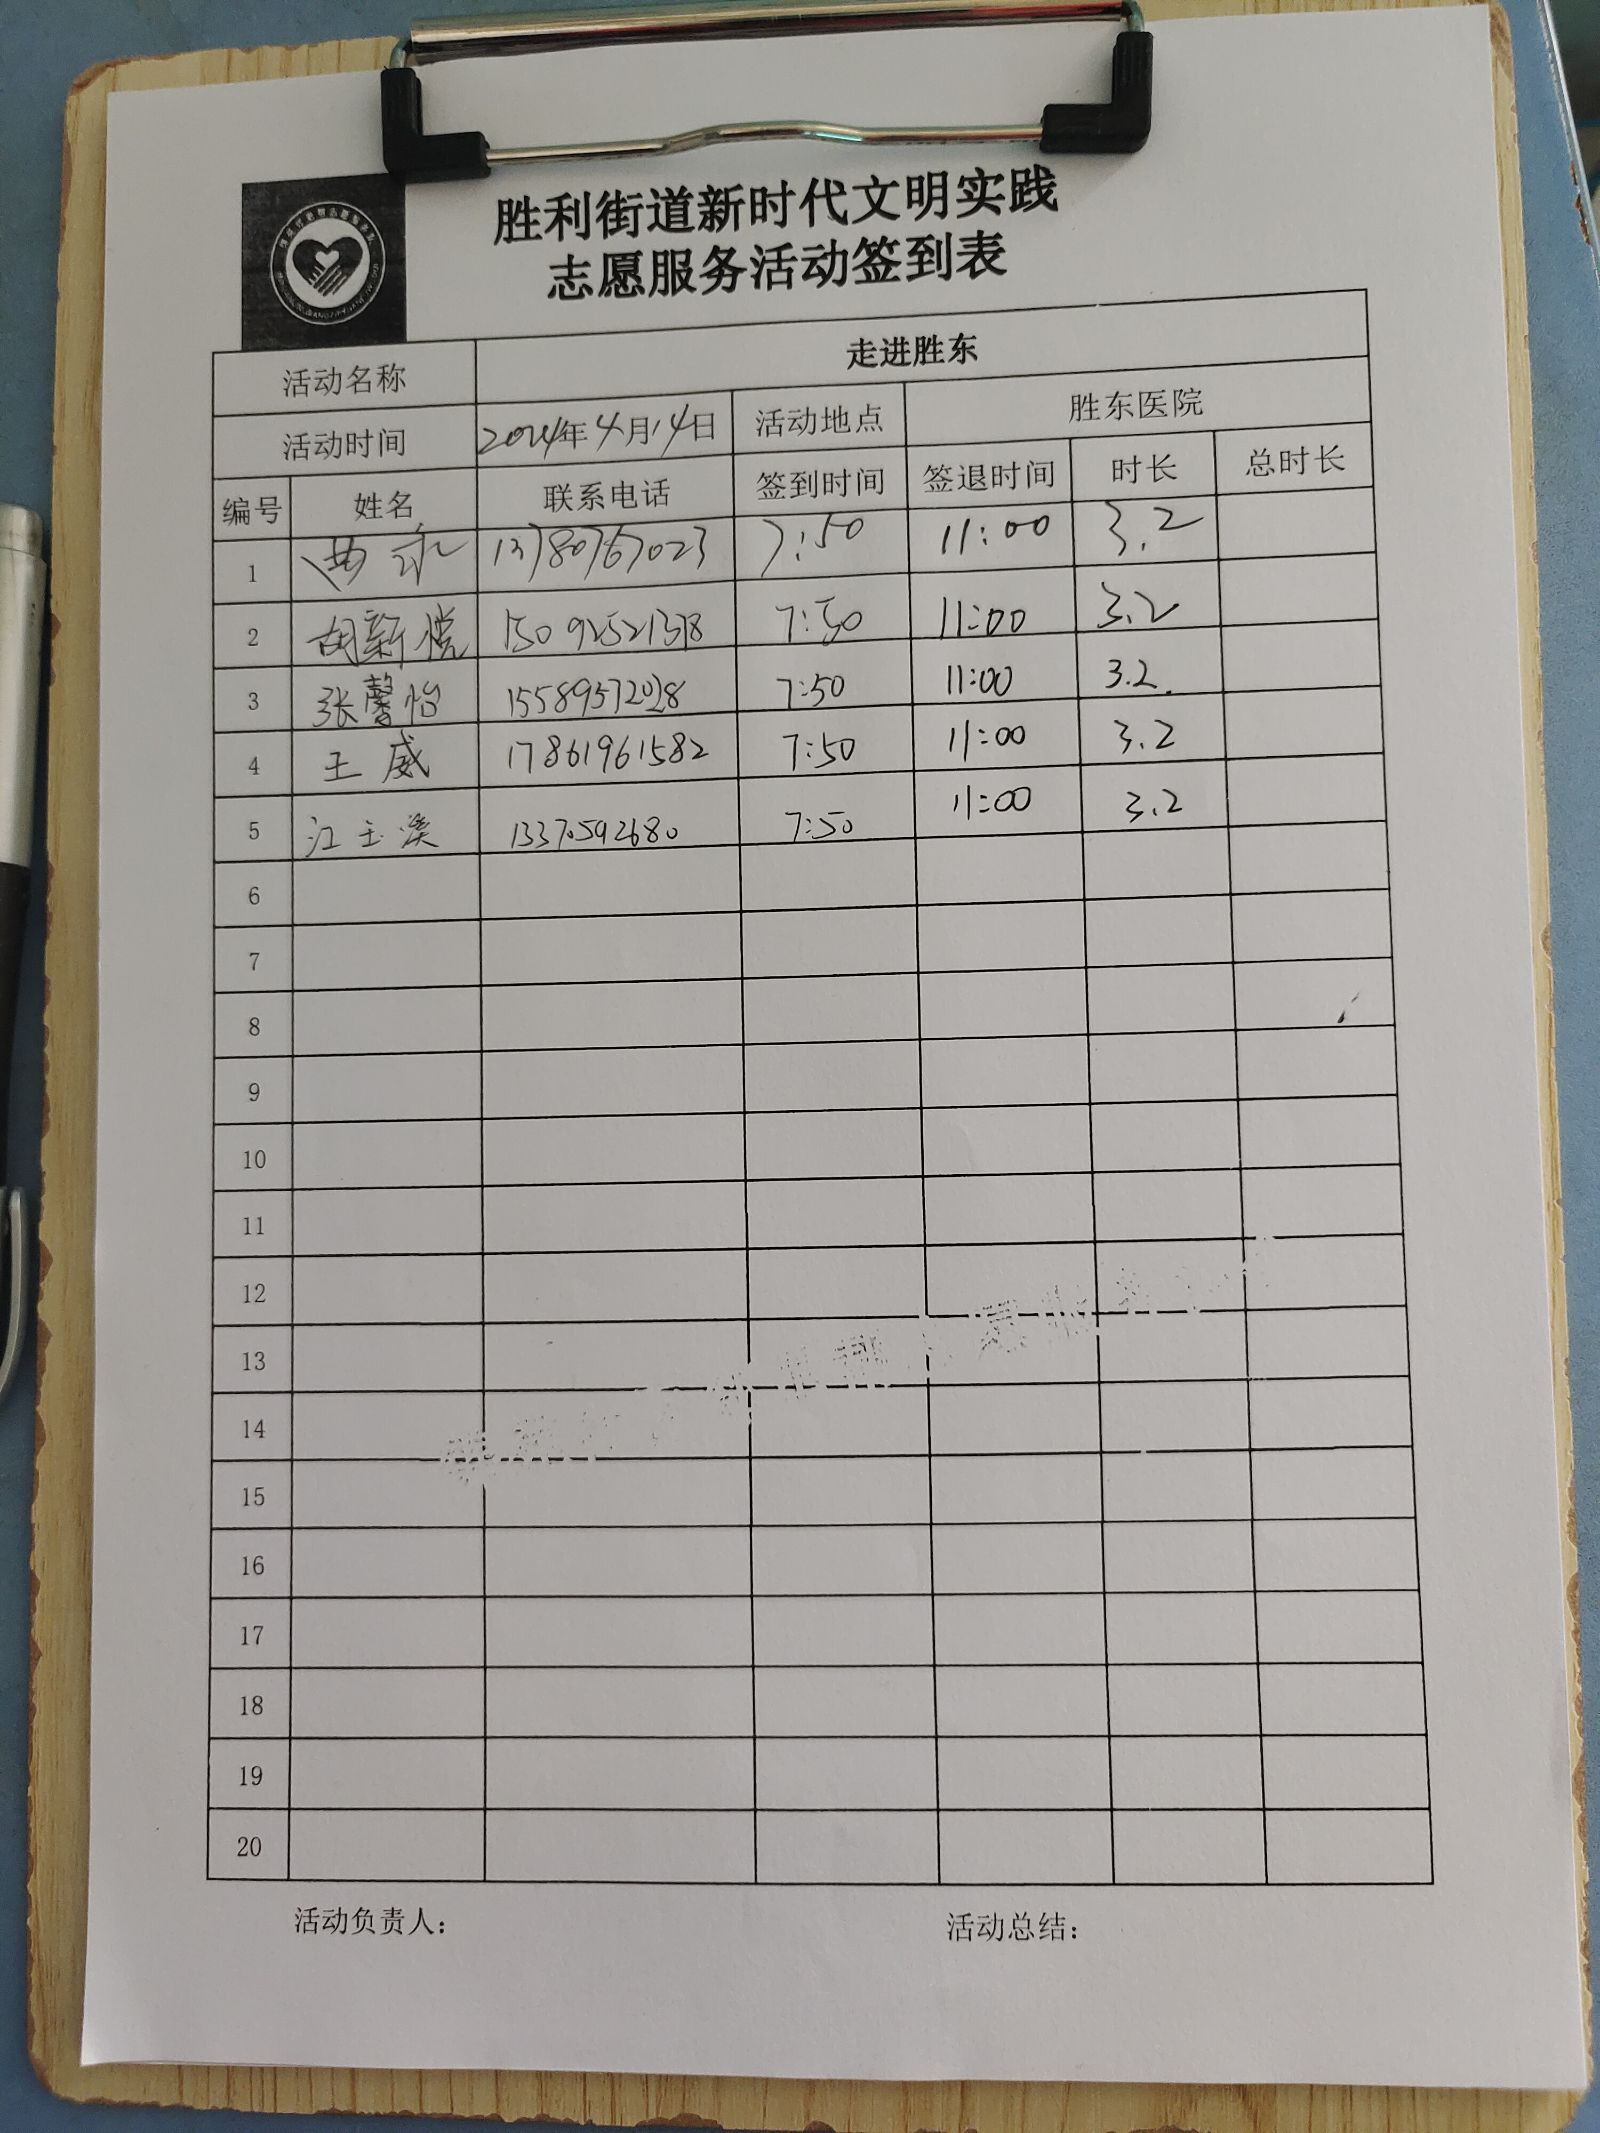 胜利街道新时代文明实践
志愿服务活动签到表
活动名称 走进胜东
活动时间 2024年4月14日 活动地点 胜东医院
编号 姓名 联系电话 签到时间 签退时间 时长 总时长
1 13780767023 7:50 11:00 3.2
2 胡新悦 15092521378 7:50 11:00 3.2
3 张馨怡 15589572028 7:50 11:00 3.2
4 王威 17861961582 7:50 11:00 3.2
5 江玉溪 13370592680 7:50 11:00 3.2
6
7
8
9
10
11
12
13
14
15
16
17
18
19
20
活动负责人： 活动总结：